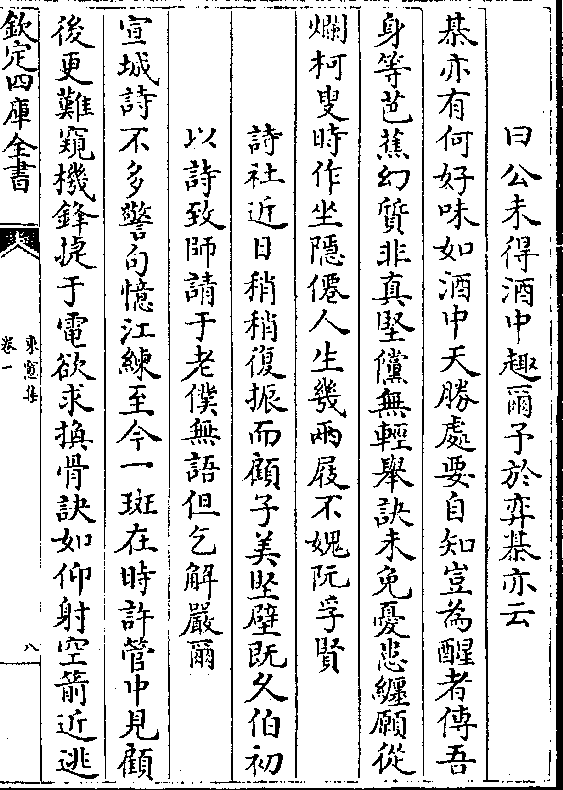 曰公未得酒中趣爾予於弈棊亦云
棊亦有何好味如酒中天勝處要自知豈為醒者傳吾
身等芭蕉幻質非真堅儻無輕舉訣未免憂患纏願從
爛柯叟時作坐隱僊人生幾兩屐不媿阮孚賢
詩社近日稍稍復振而顧子美堅壁既久伯初
以詩致師請于老僕無語但乞解嚴爾
宣城詩不多警句憶江練至今一斑在時許管中見顧
後更難窺機鋒捷于電欲求換骨訣如仰射空箭近逃
欽定四庫全書
東窗集
卷一
八